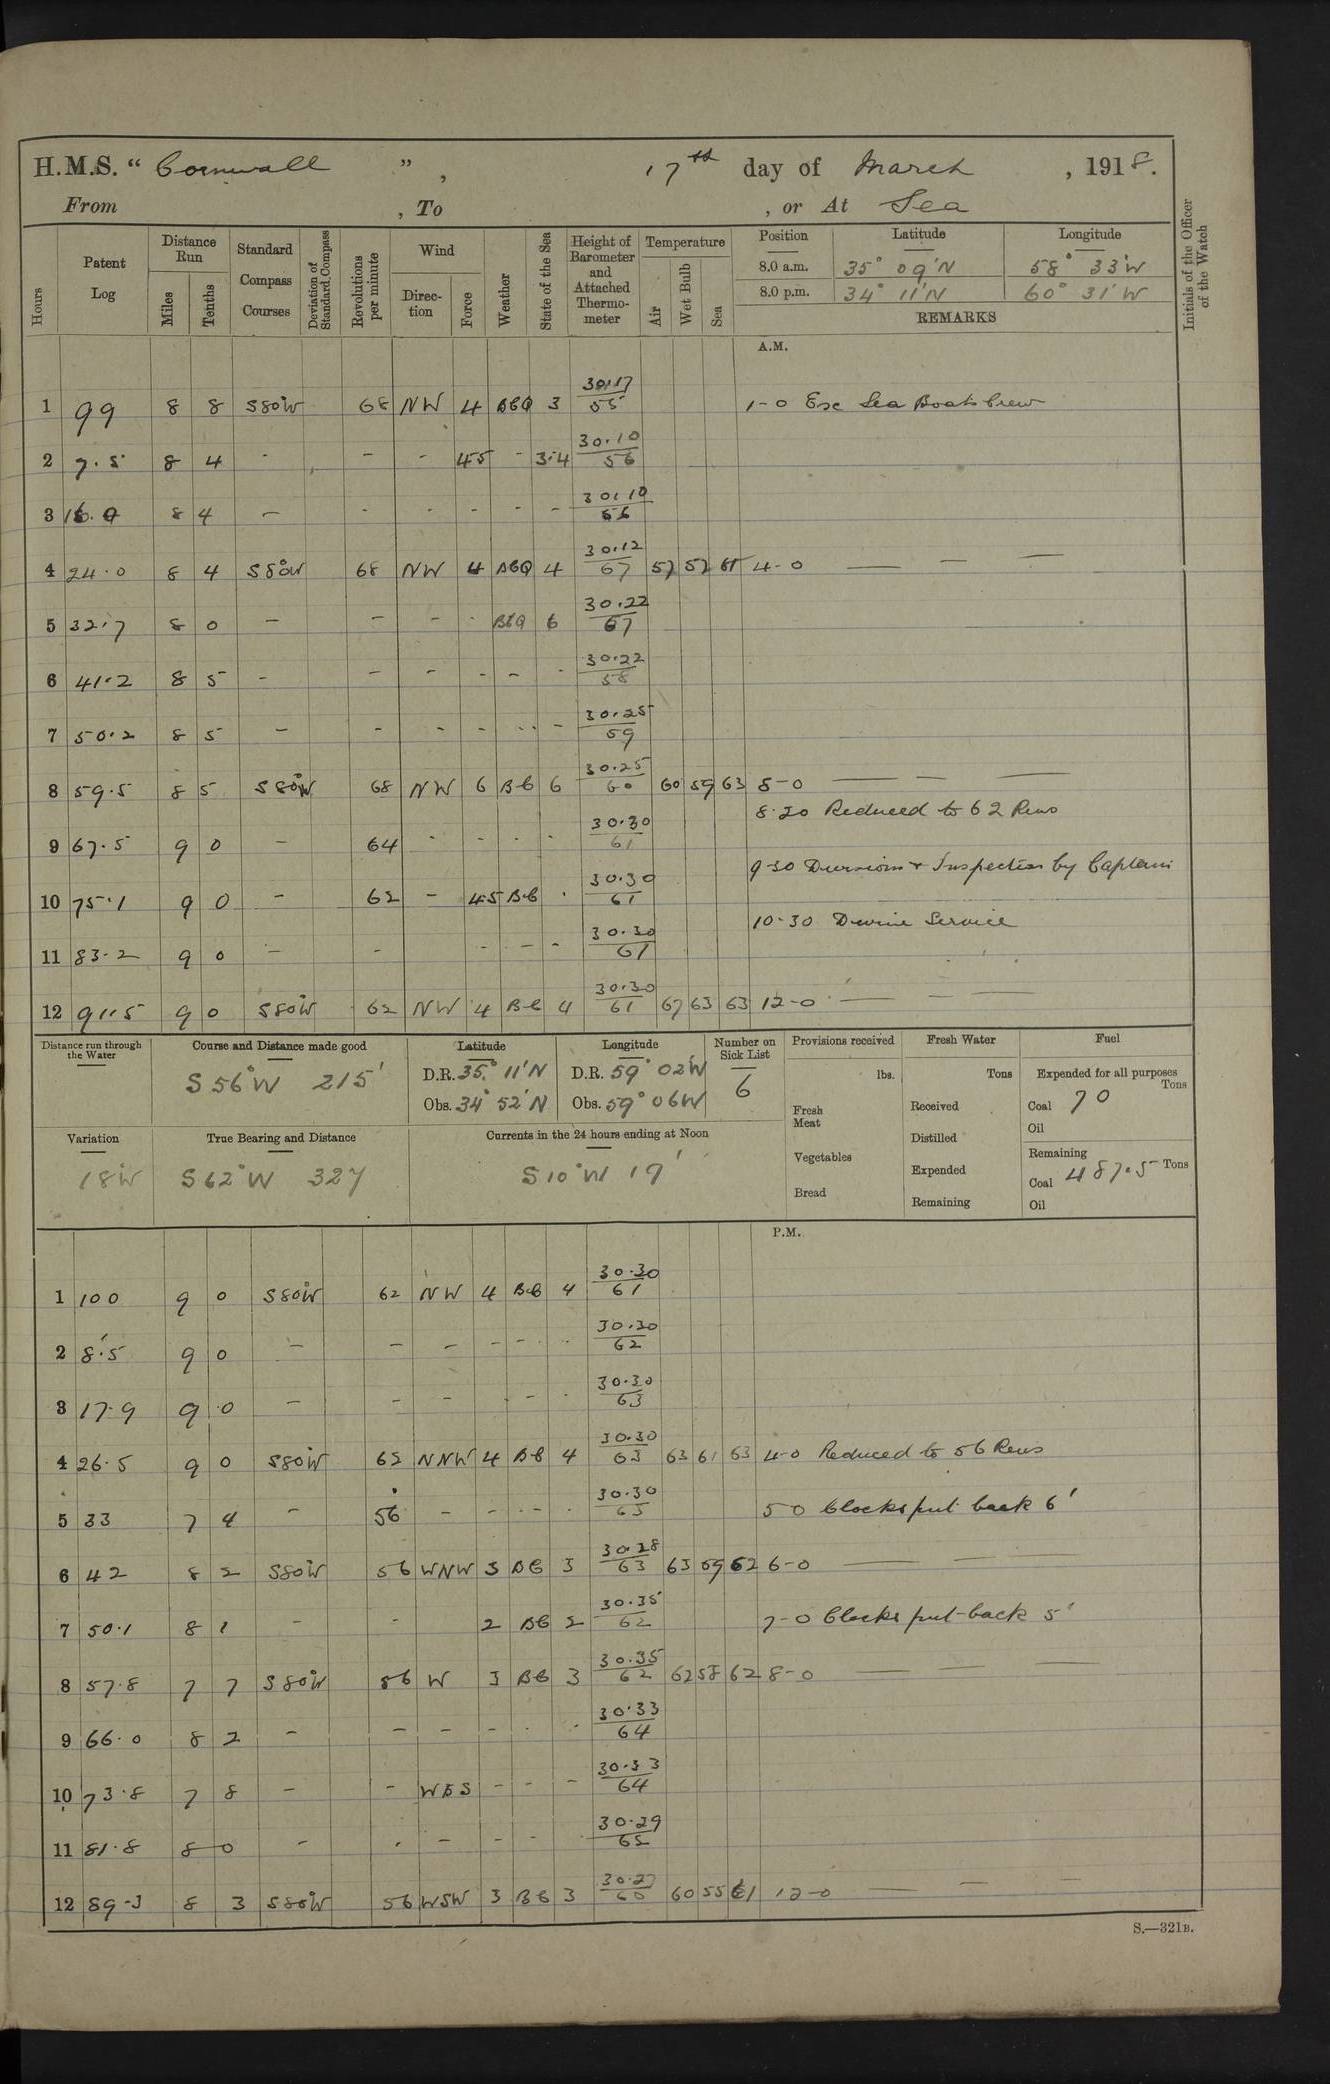 H.M.S. " Cornwall ", 17th day of March, 1918.
From , To , or At Sea
Hours
Patent Log
Distance Run
Miles
Tenths
Standard Compass Courses
Deviation of Standard Compass
Revolutions per minute
Wind
Direction
Force
Weather
State of the Sea
Height of Barometer and Attached Thermometer
Temperature
Air
Wet Bulb
Sea
Position Latitude Longitude
8.0 a.m. 35° 09'N 58° 33'W
8.0 p.m. 34° 11'N 60° 31'W
REMARKS
Initials of the Officer of the Watch
A.M.
1 99 8 8 S80W 68 NW 4 BCQ 3 30.17 55 1-0 Exc Sea Boats Crew
2 7.5 8 4 - - - 45 - 3.4 30.10 56
3 8 4 - - - - - - 30.10 56
4 24.0 8 4 S80W 68 NW 4 BCQ 4 30.12 57 57 4-0 — — —
5 32.7 8 0 - - - - BCQ 6 30.22 57
6 41.2 8 5 - - - - - - 30.22 58
7 50.2 8 5 - - - - - - 30.25 59
8 59.5 8 5 S80W 68 NW 6 B-C 6 30.25 60 60 59 63 8-0 — — —
8.20 Reduced to 62 Revs
9 67.5 9 0 - 64 - - - - 30.30 61
9-30 Divisions + Inspection by Captain
10 75.1 9 0 - 62 - 45 B-C - 30.30 61
10-30 Divine Service
11 83.2 9 0 - - - - - 30.30 61
12 91.5 9 0 S80W 62 NW 4 B-C 4 30.30 61 67 63 63 12-0 — — —
Distance run through the Water
Course and Distance made good
S 56°W 215'
Latitude
D.R. 35° 11'N
Obs. 34° 52'N
Longitude
D.R. 59° 02'W
Obs. 59° 06W
Number on Sick List
6
Provisions received
lbs.
Fresh Meat
Vegetables
Bread
Fresh Water
Tons
Received
Distilled
Expended
Remaining
Fuel
Expended for all purposes
Tons
Coal 70
Oil
Remaining
Coal 487.5 Tons
Oil
Variation
18W
True Bearing and Distance
S 62°W 327
Currents in the 24 hours ending at Noon
S 10°W 17'
P.M.
1 100 9 0 S80W 62 NW 4 B-C 4 30.30 61
2 8.5 9 0 - - - - - - 30.30 62
3 17.9 9 0 - - - - - - 30.30 63
4 26.5 9 0 S80W 62 NNW 4 B-C 4 30.30 63 63 61 63 4-0 Reduced to 56 Revs
5 33 7 4 - 56 - - - - 30.30 63 5 0 Clocks put back 6'
6 42 8 2 S80W 56 WNW 3 BC 3 30.28 63 63 59 62 6-0 — —
7 50.1 8 1 - - 2 BC 2 30.35 62 7-0 Clocks put-back 5'
8 57.8 7 7 S80W 56 W 3 BC 3 30.35 62 62 58 62 8-0 — — —
9 66.0 8 2 - - - - - - 30.33 64
10 73.8 7 8 - - WBS - - - 30.33 64
11 81.8 8 0 - - - - - 30.29 65
12 89-3 8 3 S80W 56 WSW 3 BC 3 30.27 60 60 55 61 12-0 — — —
S.—321B.